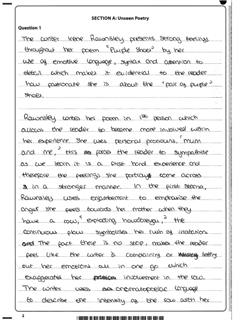 SECTION A: Unseen Poetry
Question 1
The writer Irene Rawnsley presents strong feelings
throughout her poem "Purple Shoes" by her
use of emotive language, syntax and attention to
detail which makes it evidential to the reader
how passionate she is about the "pair of purple"
shoes.
Rawnsley writes her poem in 1st person which
allows the reader to become more involved within
her experience. She uses personal pronouns, "mum
and me," this forces the reader to sympathise
as we learn it is a first hand experience and
therefore the feelings she portrays come across
in a stronger manner. In the first stanza,
Rawnsley uses enjambement to emphasise the
anger she feels towards her mother when they
have a row, the
continuous flow symbolises her rush of
and The fact there is no stop, makes the reader
feel like the writer is complaining or letting
out her emotions all in one go which
exaggerates her involvement in the row.
The writer uses onomatopoeic language
to describe the intensity of the row with her
2